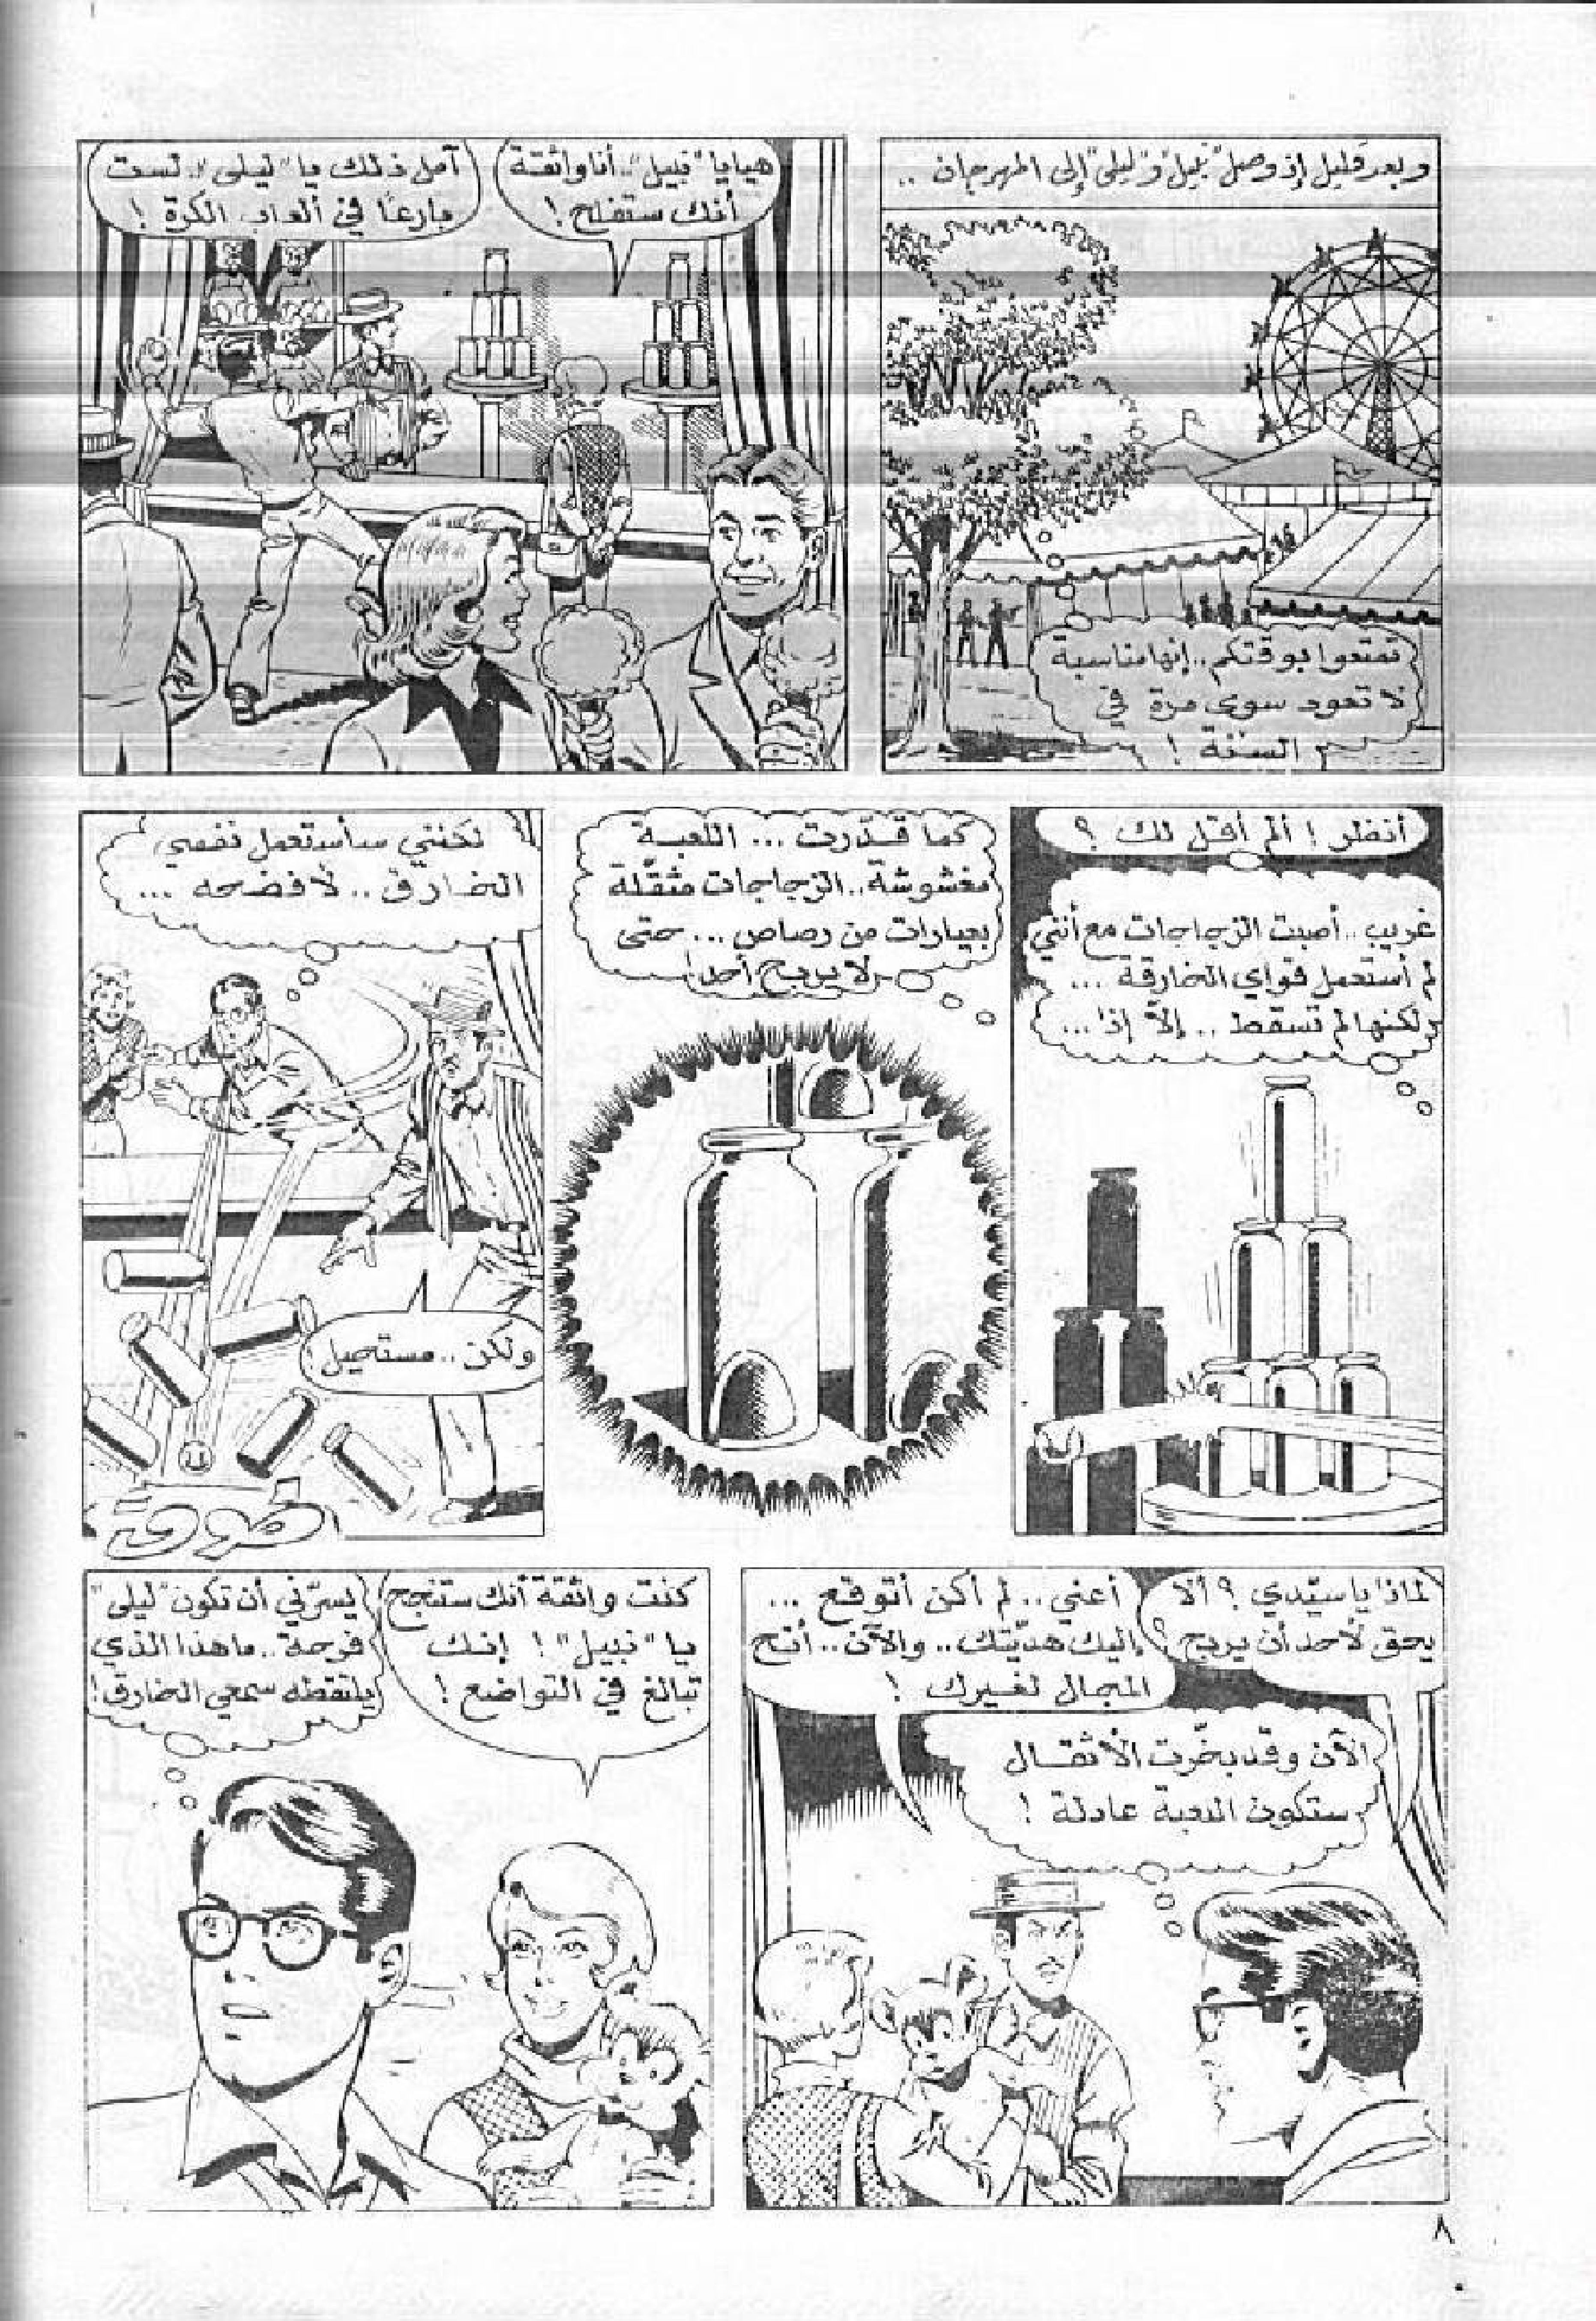 وبعد قليل إذ وصل "نبيل" و"ليلى" إلى المهرجان ..
تمتعوا بوقتكم .. إنها مناسبة
لا تعود سوى مرة في
السنة !
هيا يا "نبيل" .. أنا واثقة
أنك ستفلح !
آمل ذلك يا "ليلى" .. لست
بارعًا في ألعاب الكرة !
أنظر ! ألم أقل لك ؟
غريب .. أصبت الزجاجات مع أنني
لم أستعمل قواي الخارقة ...
ولكنها لم تسقط .. إلاّ إذا ...
كما قدّرت ... اللعبة
مغشوشة .. الزجاجات مثقّلة
بعيارات من رصاص ... حتى
لا يربح أحد !
لكنني سأستعمل نفسي
الخارق .. لأفضحه ...
ولكن .. مستحيل !
لماذا يا سيّدي ؟ ألا
يحق لأحد أن يربح ؟
أعني .. لم أكن أتوقع ...
إليك هديّتك .. والآن .. أفتح
المجال لغيرك !
الآن وقد بخّرت الأثقال
ستكون اللعبة عادلة !
كنت واثقة أنك ستنجح
يا "نبيل" ! إنك
تبالغ في التواضع !
يسرّني أن تكون "ليلى"
فرحة .. ما هذا الذي
يلتقطه سمعي الخارق !
٨